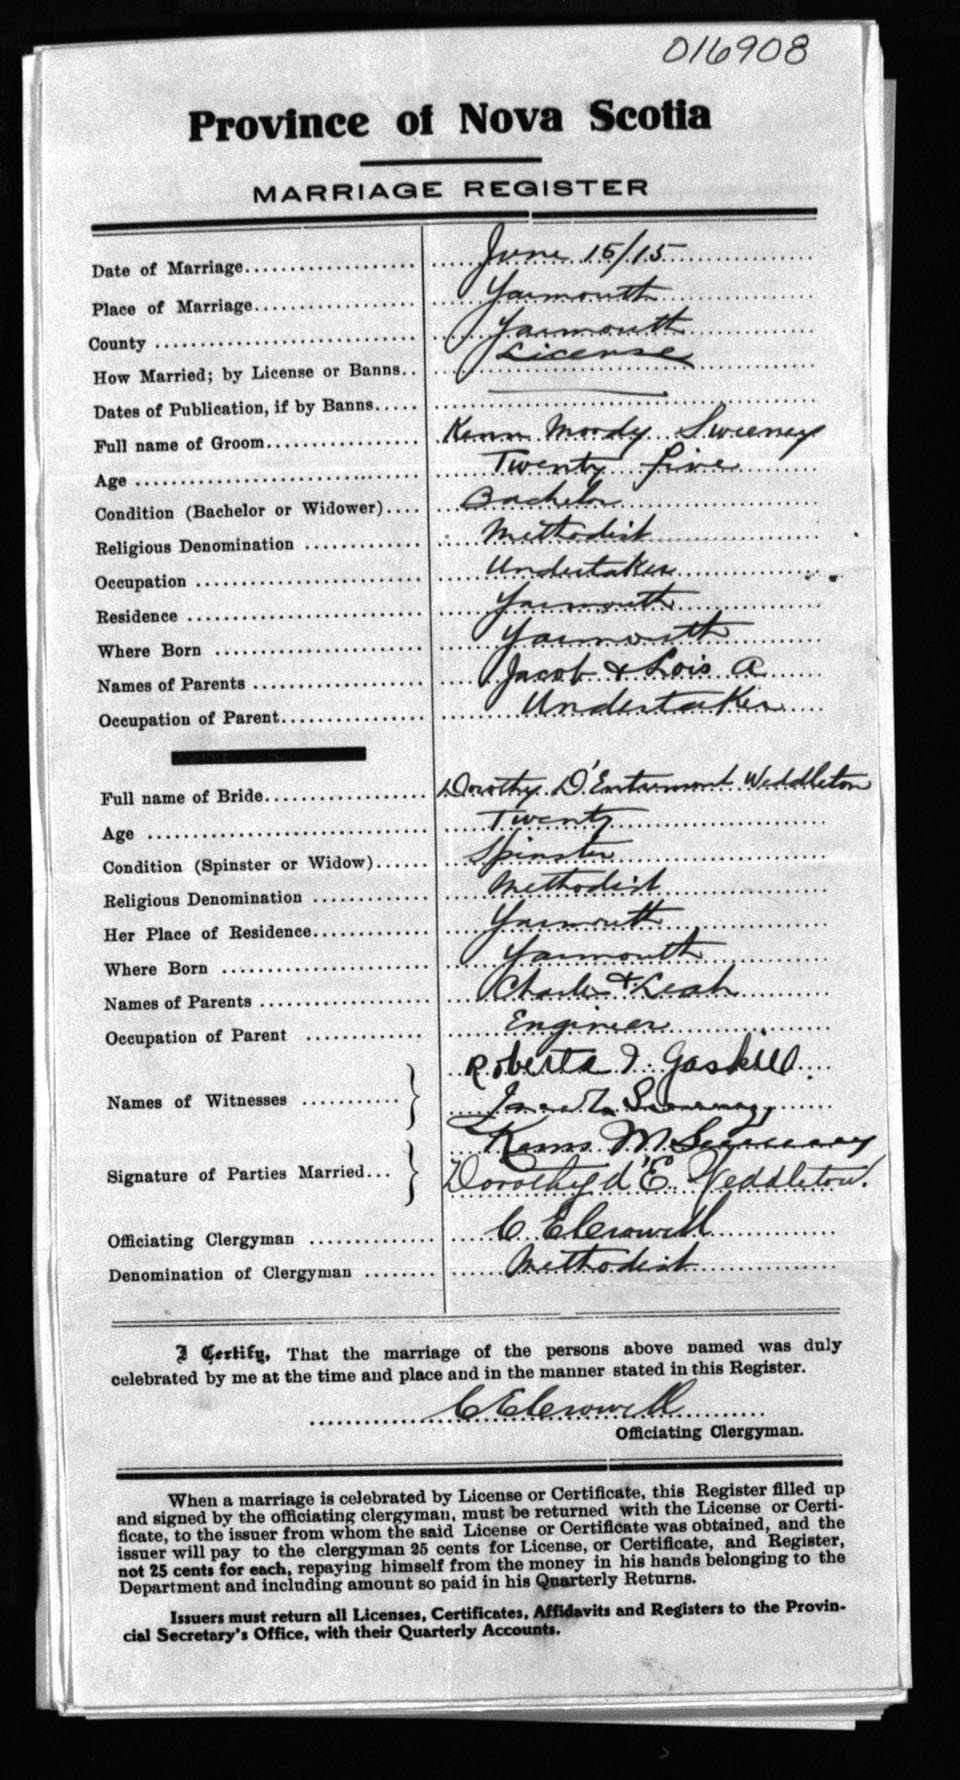 016908
Province of Nova Scotia
MARRIAGE REGISTER
Date of Marriage.................... June 15/15
Place of Marriage................... Yarmouth
County ............................. Yarmouth
How Married; by License or Banns.. License
Dates of Publication, if by Banns.....
Full name of Groom.................. Moody Sweeney
Age ................................ Twenty five
Condition (Bachelor or Widower).... Bachelor
Religious Denomination ............ Methodist
Occupation ......................... Undertaker
Residence .......................... Yarmouth
Where Born ......................... Yarmouth
Names of Parents ................... Jacob & Lois A
Occupation of Parent................ Undertaker
Full name of Bride.................. Dorothy D'Entremont Weddleton
Age ................................ Twenty
Condition (Spinster or Widow)...... Spinster
Religious Denomination ............ Methodist
Her Place of Residence............. Yarmouth
Where Born ......................... Yarmouth
Names of Parents ................... Charles & Leah
Occupation of Parent ............... Engineer
Roberta I. Gaskill
Names of Witnesses ...........
Sweeney
M Sweeney
Signature of Parties Married...
Dorothy d'E. Weddleton.
Officiating Clergyman .............. C E Crowell
Denomination of Clergyman ........ Methodist
I Certify, That the marriage of the persons above named was duly
celebrated by me at the time and place and in the manner stated in this Register.
C E Crowell
Officiating Clergyman.
When a marriage is celebrated by License or Certificate, this Register filled up
and signed by the officiating clergyman, must be returned with the License or Certi-
ficate, to the issuer from whom the said License or Certificate was obtained, and the
issuer will pay to the clergyman 25 cents for License, or Certificate, and Register,
not 25 cents for each, repaying himself from the money in his hands belonging to the
Department and including amount so paid in his Quarterly Returns.
Issuers must return all Licenses, Certificates, Affidavits and Registers to the Provin-
cial Secretary's Office, with their Quarterly Accounts.